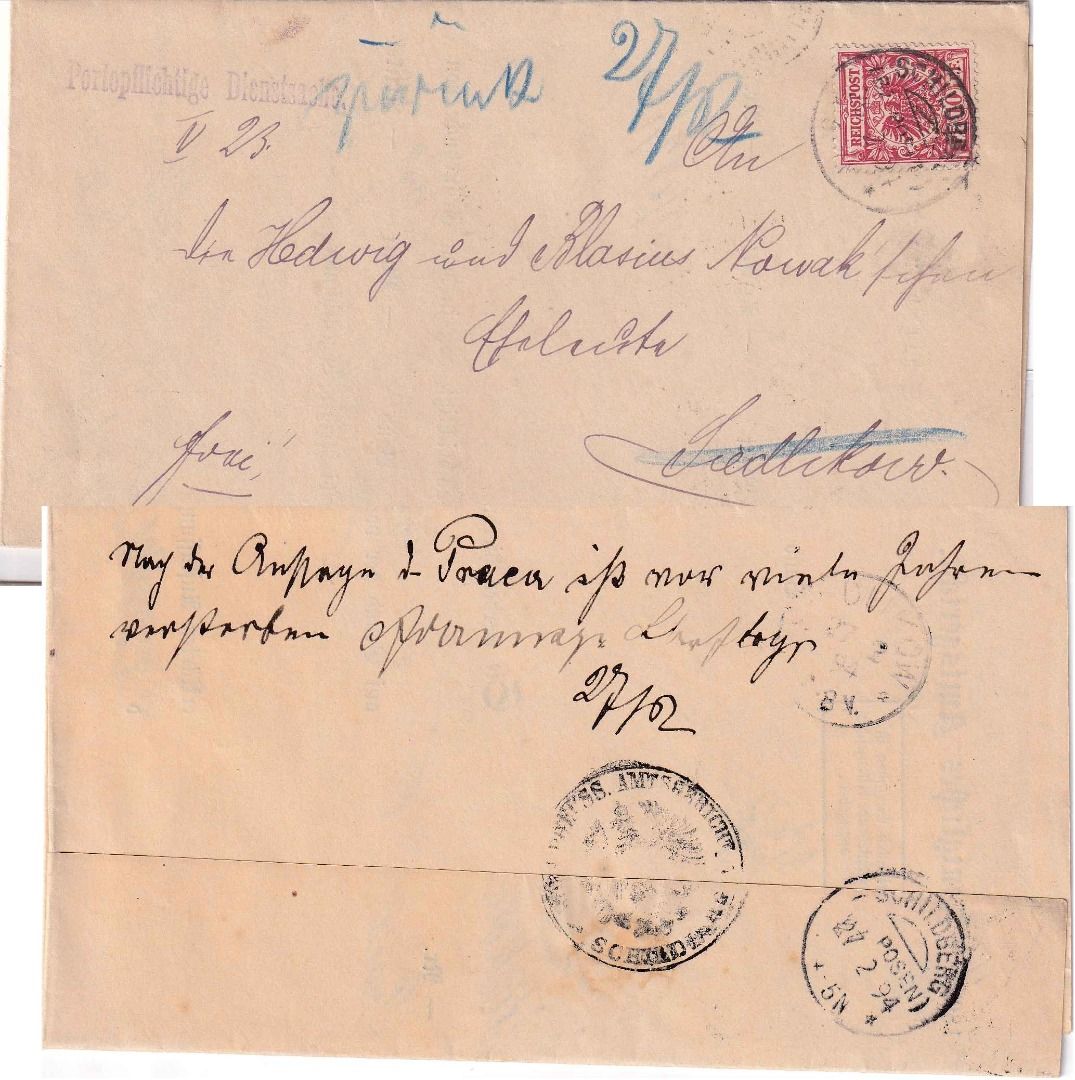 Portopflichtige Dienstsache.
zurück 27/2
REICHSPOST
V 23.
An
die Hedwig und Blasius Nowak'schen
Eheleute
Siedlikow.
frei!
Nach der Aussage d Praca ist vor viele Jahren
verstorben
27/2
PREUSS. AMTSGERICHT
SCHILDBERG
SCHILDBERG
(POSEN)
27 2 94
5-6N